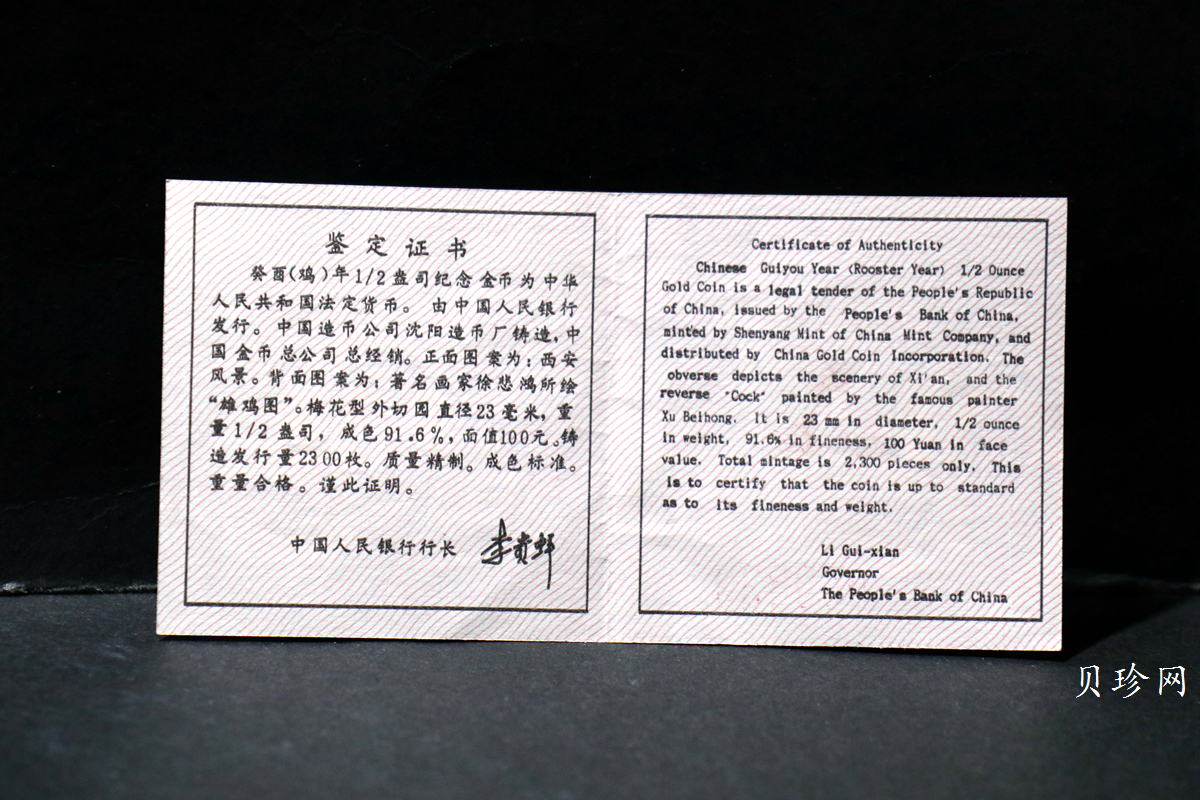 鉴定证书
癸酉(鸡)年1/2盎司纪念金币为中华
人民共和国法定货币。由中国人民银行
发行。中国造币公司沈阳造币厂铸造,中
国金币总公司总经销。正面图案为:西安
风景。背面图案为:著名画家徐悲鸿所绘
“雄鸡图”。梅花型外切园直径23毫米,重
量1/2盎司,成色91.6%,面值100元。铸
造发行量2300枚。质量精制。成色标准。
重量合格。谨此证明。
中国人民银行行长 李贵鲜
Certificate of Authenticity
Chinese Guiyou Year (Rooster Year) 1/2 Ounce
Gold Coin is a legal tender of the People's Republic
of China, issued by the People's Bank of China,
minted by Shenyang Mint of China Mint Company, and
distributed by China Gold Coin Incorporation. The
obverse depicts the scenery of Xi'an, and the
reverse "Cock" painted by the famous painter
Xu Beihong. It is 23 mm in diameter, 1/2 ounce
in weight, 91.6% in fineness, 100 Yuan in face
value. Total mintage is 2,300 pieces only. This
is to certify that the coin is up to standard
as to its fineness and weight.
Li Gui-xian
Governor
The People's Bank of China
贝珍网